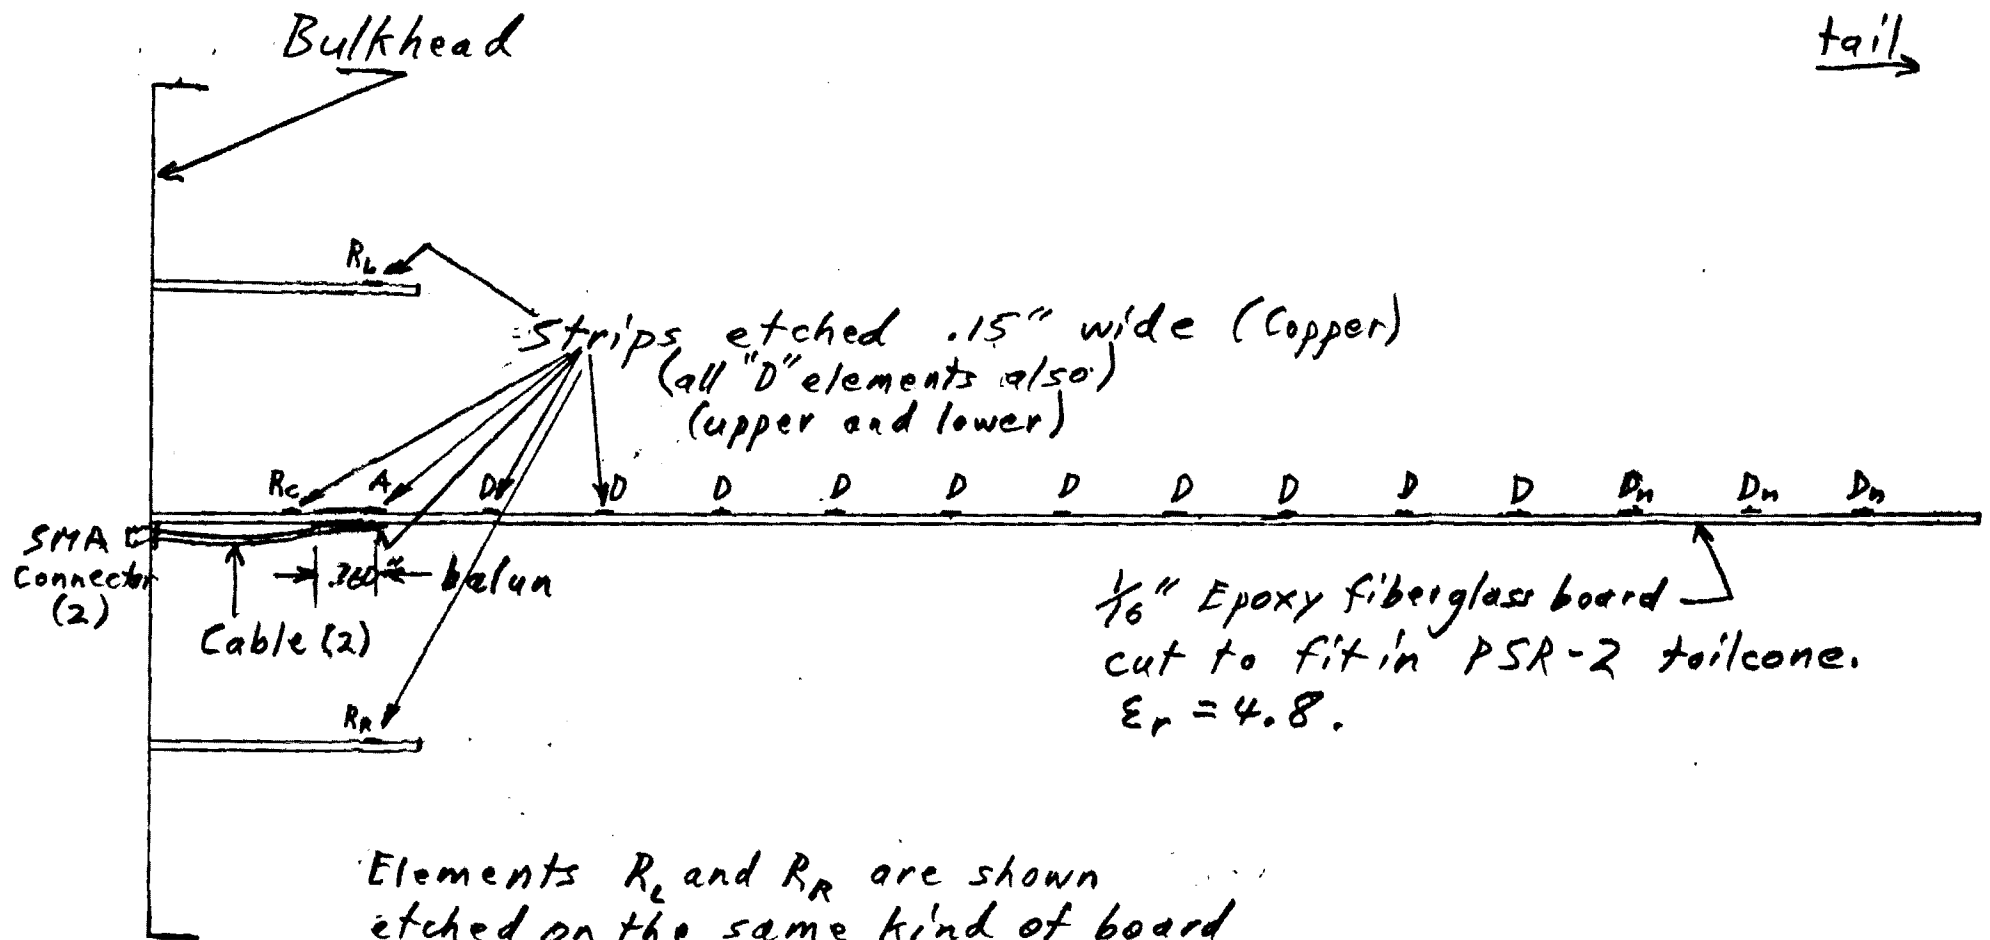 Bulkhead
tail
R_L
Strips etched .15" wide (Copper)
(all "D" elements also)
(upper and lower)
R_C A D D D D D D D D D D D_n D_n D_n
SMA
Connector
(2)
.360" balun
Cable (2)
1/16" Epoxy fiberglass board
cut to fit in PSR-2 tailcone.
ε_r = 4.8.
R_R
Elements R_L and R_R are shown
etched on the same kind of board